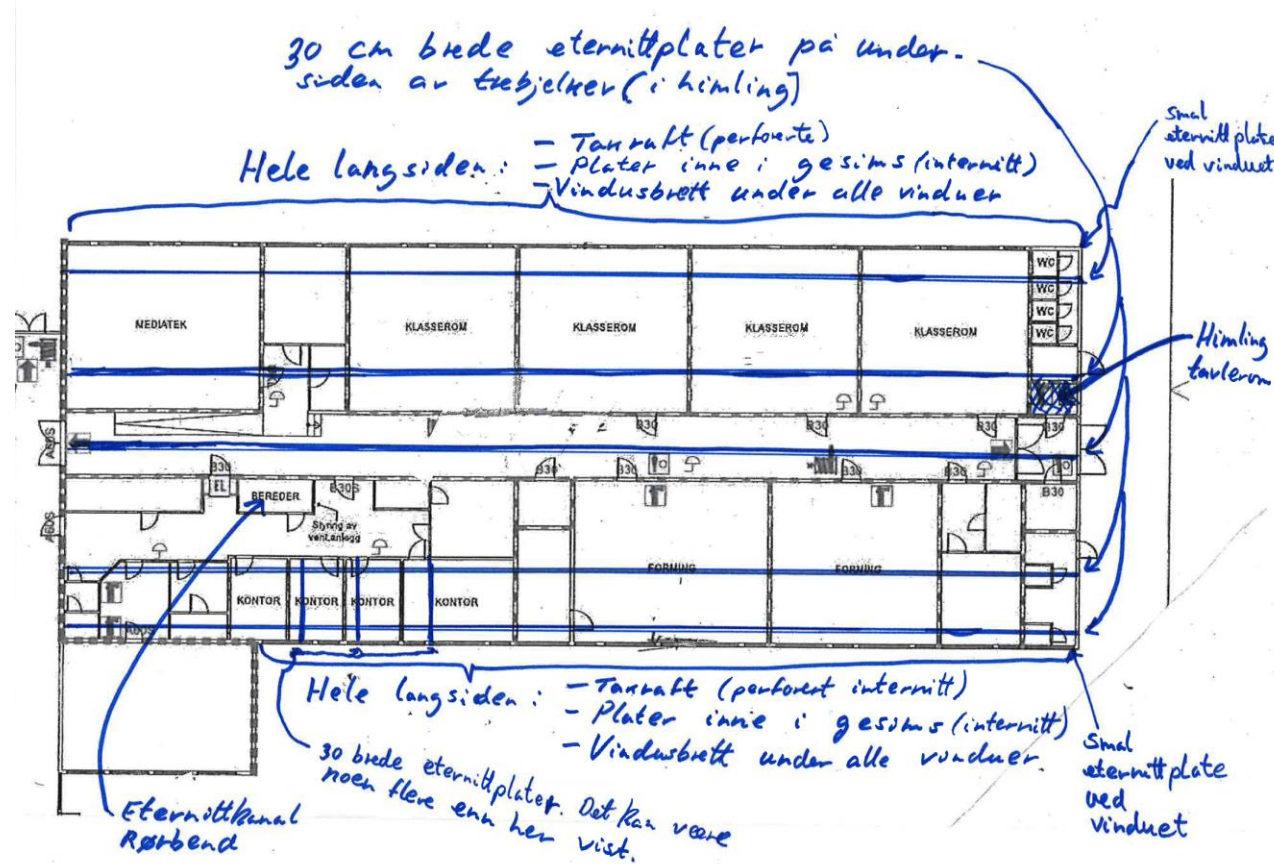 30 cm brede eternittplater på under-
siden av trebjelker (i himling)
smal
eternittplate
ved vinduet
Hele langsiden:
- Takraft (perforerte)
- Plater inne i gesims (internitt)
- Vindusbrett under alle vinduer
WC
WC
WC
WC
MEDIATEK
KLASSEROM
KLASSEROM
KLASSEROM
KLASSEROM
Himling
tavlerom
B30
B30
B30
B30
A60S
B30
B30
B30
B30
B30
EL
BEREDER
B30S
B30
A60S
Styring av
vent.anlegg
FORMING
FORMING
KONTOR
KONTOR
KONTOR
KONTOR
A60S
Hele langsiden:
- Takraft (perforert internitt)
- Plater inne i gesims (internitt)
- Vindusbrett under alle vinduer
30 brede eternittplater. Det kan være
noen flere enn her vist.
Smal
eternittplate
ved
vinduet
Eternittkanal
Rørbend